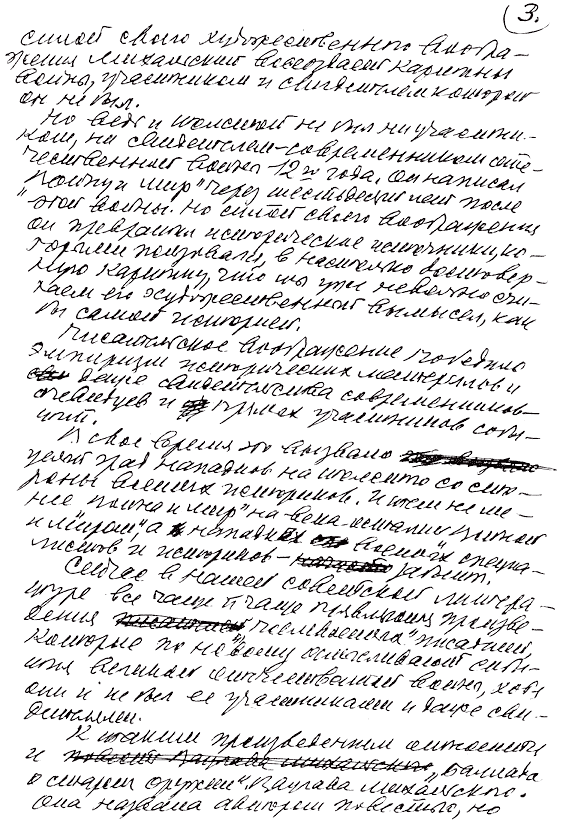 3.
силой своего художественного вообра-
жения Михальский воссоздает картины
войны, участником и свидетелем которой
он не был.
Но ведь и Толстой не был ни участни-
ком, ни свидетелем-современником оте-
чественной войны 12го года, он написал
"Войну и мир" через шестьдесят лет после
этой войны. Но силой своего воображения
он превратил исторические источники, ко-
торыми пользовался, в настолько достовер-
ную картину, что мы уже невольно счи-
таем его художественный вымысел, как
бы самой историей.
Писательское воображение победило
эмпиризм исторических материалов и
даже свидетельства современников-
очевидцев и прямых участников собы-
тий.
В свое время это вызвало
целый град нападков на Толстого со сто-
роны военных историков. И тем не ме-
нее "Война и мир" на века остались Войной
и Миром, а нападки военных специа-
листов и историков - забыты.
Сейчас в нашей советской литера-
туре все чаще и чаще появляются произве-
дения писателей,
которые по новому осмысливают собы-
тия Великой отечественной войны, хотя
они и не были ее участниками и даже сви-
детелями.
К таким произведениям относится
и повесть Вацлава Михальского "Баллада
о старом оружии" Вацлава Михальского.
Она названа автором повестью, но